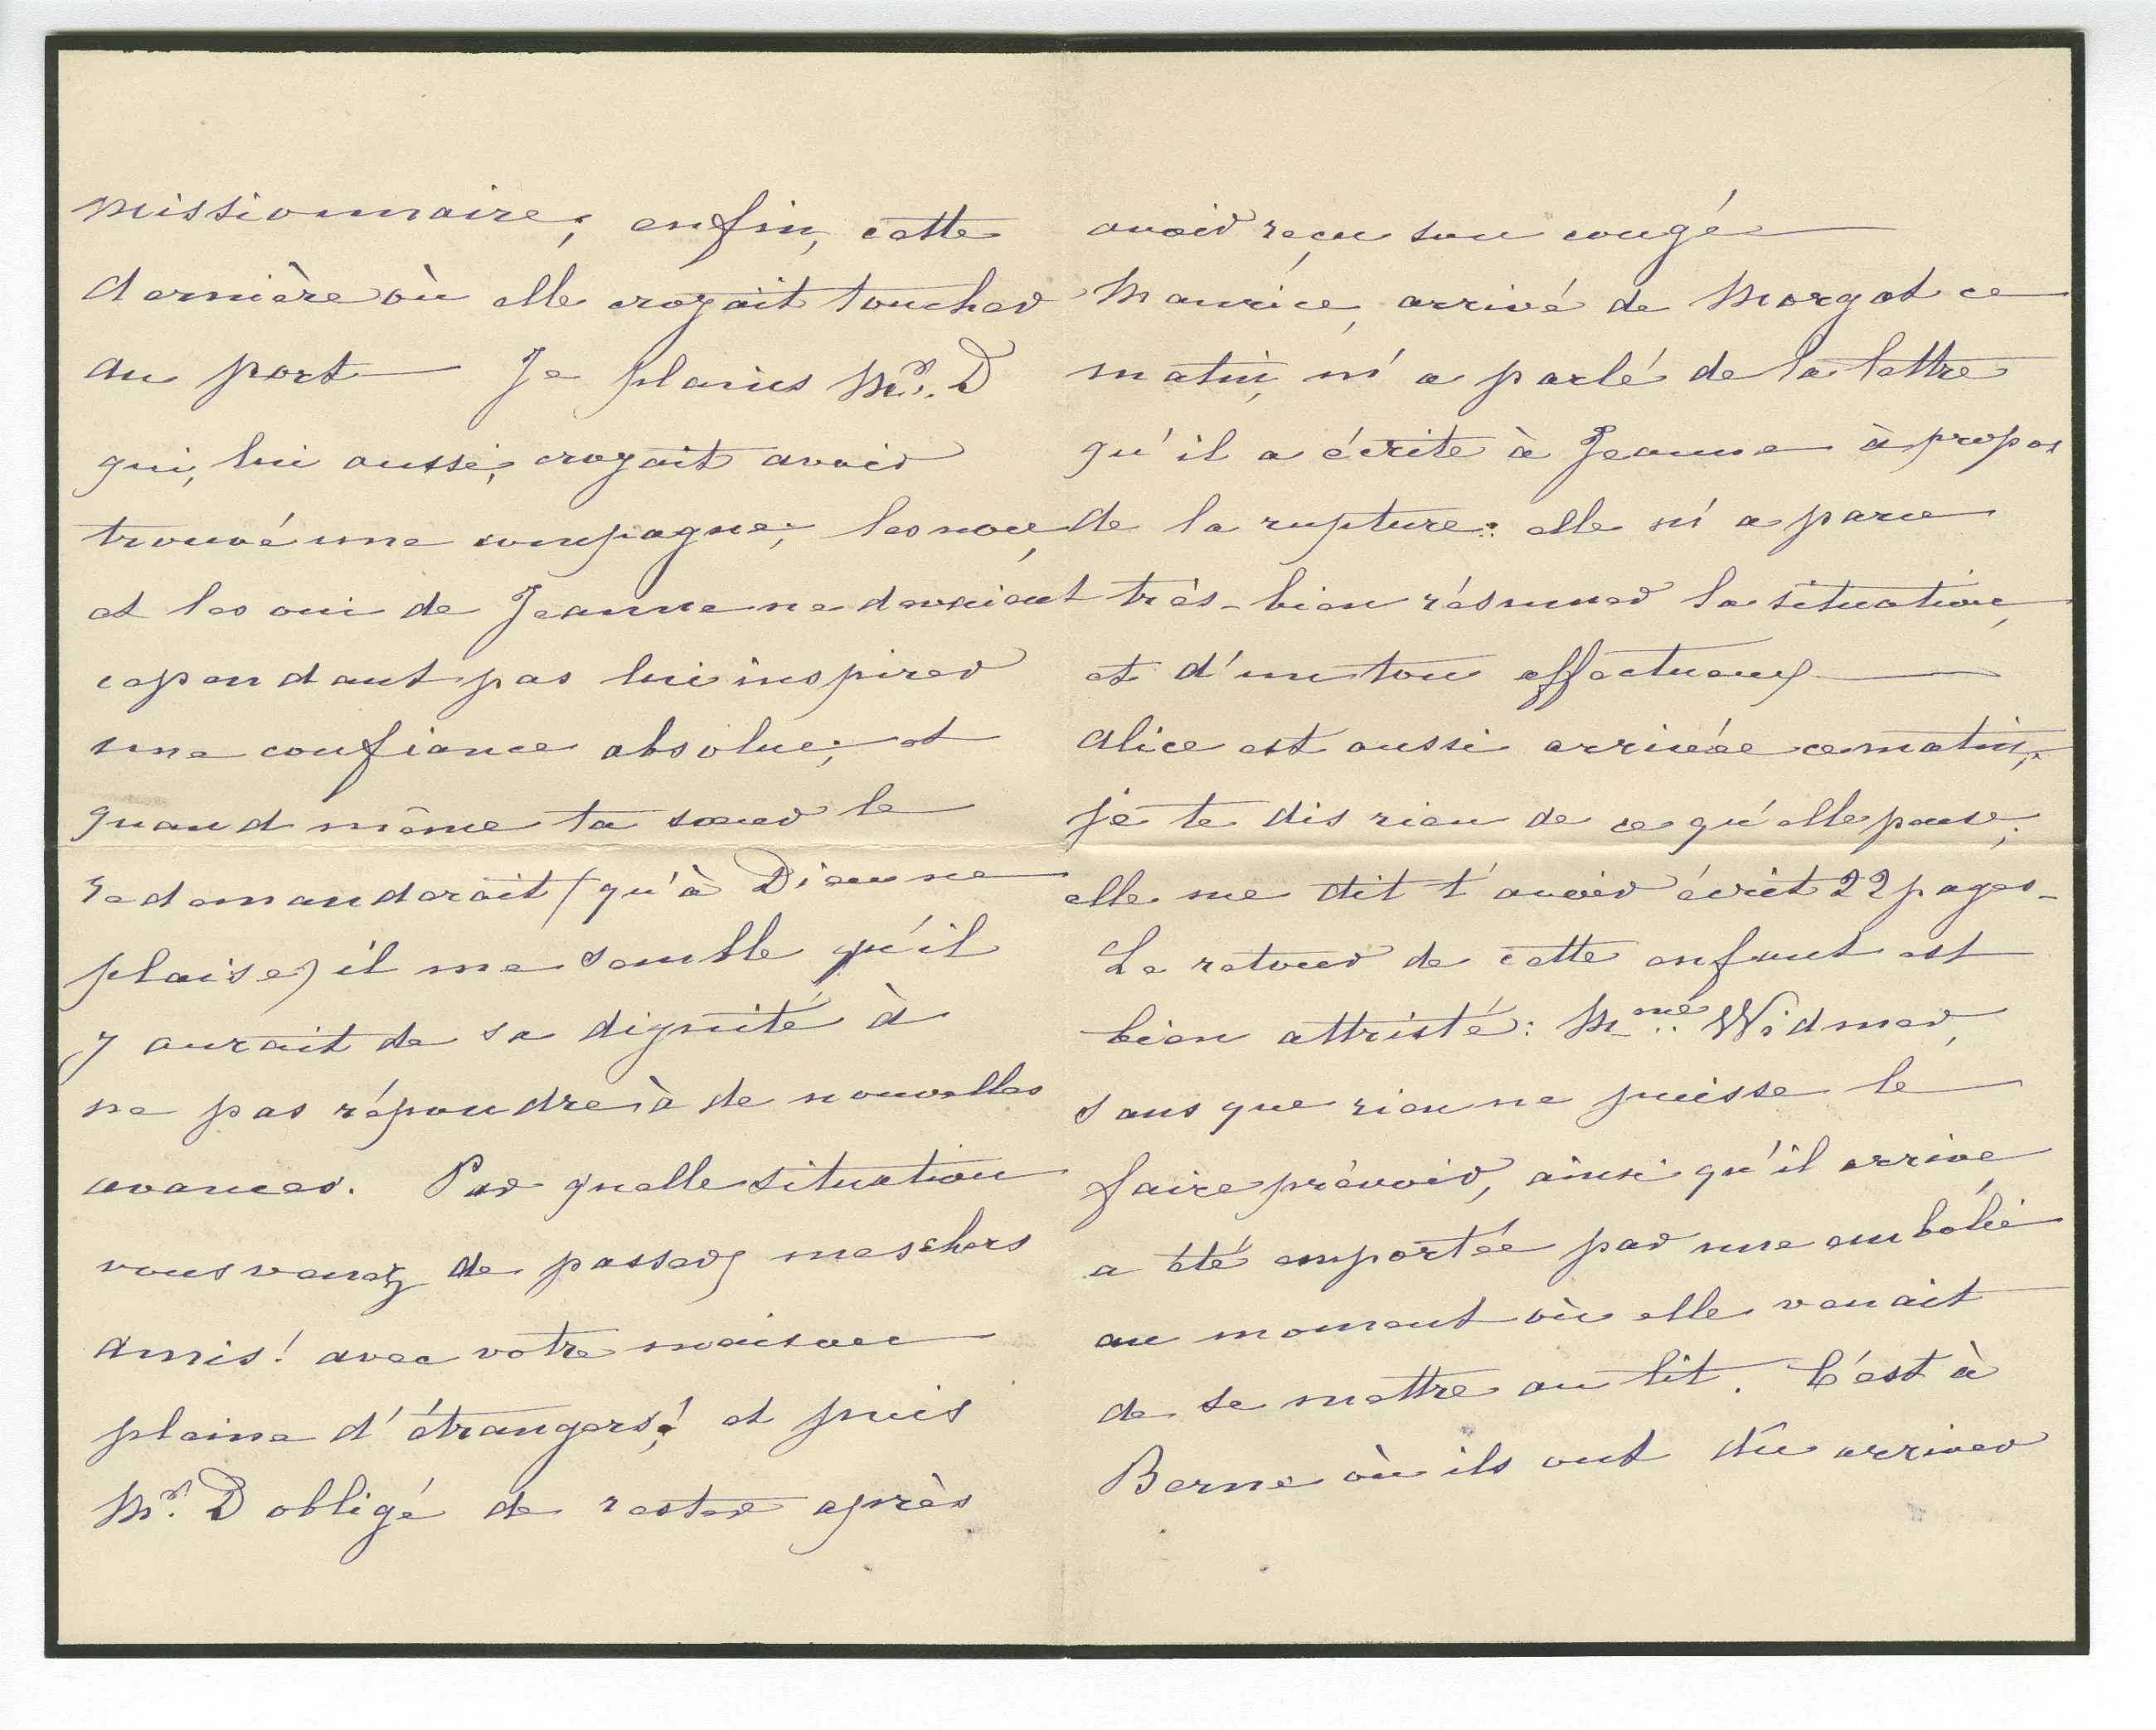 missionnaire; enfin, cette
dernière où elle croyait toucher
au port — Je plains Mr. D
qui, lui aussi, croyait avoir
trouvé une compagne; les non,
et les oui de Jeanne ne devaient
cependant pas lui inspirer
une confiance absolue; et
quand même ta sœur le
redemanderait (qu'à Dieu ne
plaise) il me semble qu'il
y aurait de sa dignité à
ne pas répondre à de nouvelles
avances. Par quelle situation
vous venez de passer, mes chers
amis! avec votre maison
pleine d'étrangers! et puis
Mr. D obligé de rester après
avoir reçu son congé —
Maurice, arrivé de Morgat ce
matin, m'a parlé de la lettre
qu'il a écrite à Jeanne à propos
de la rupture: elle m'a paru
très-bien résumer la situation,
et d'un ton affectueux —
Alice est aussi arrivée ce matin,
je te dis rien de ce qu'elle pense;
elle me dit t'avoir écrit 22 pages -
Le retour de cette enfant est
bien attristé: Mme Widmer,
sans que rien ne puisse le
faire prévoir, ainsi qu'il arrive,
a été emportée par une embolie
au moment où elle venait
de se mettre au lit. C'est à
Berne où ils ont dû arriver